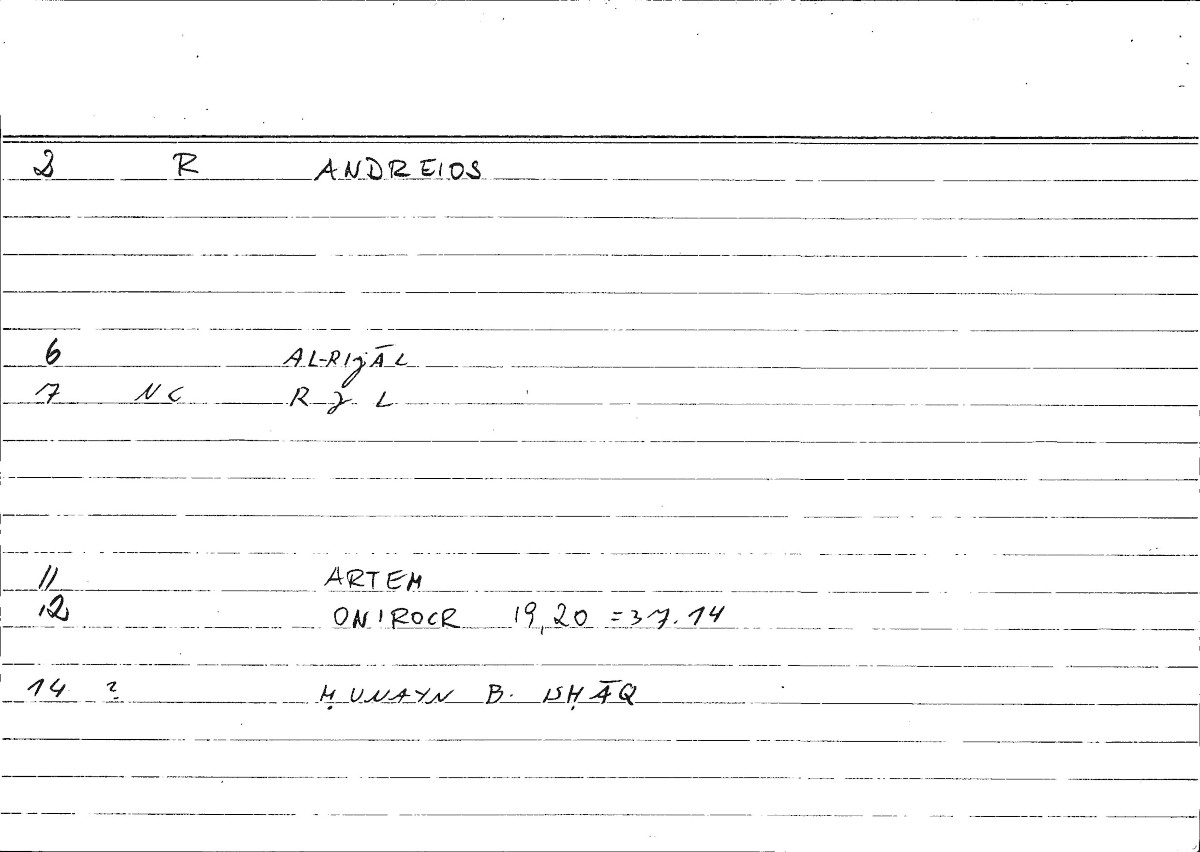 2 R ANDREIOS
6 AL-RIJĀL
7 NC R J L
11 ARTEM
12 ONIROCR 19,20 = 37.14
14 ? ḤUNAYN B. ISḤĀQ